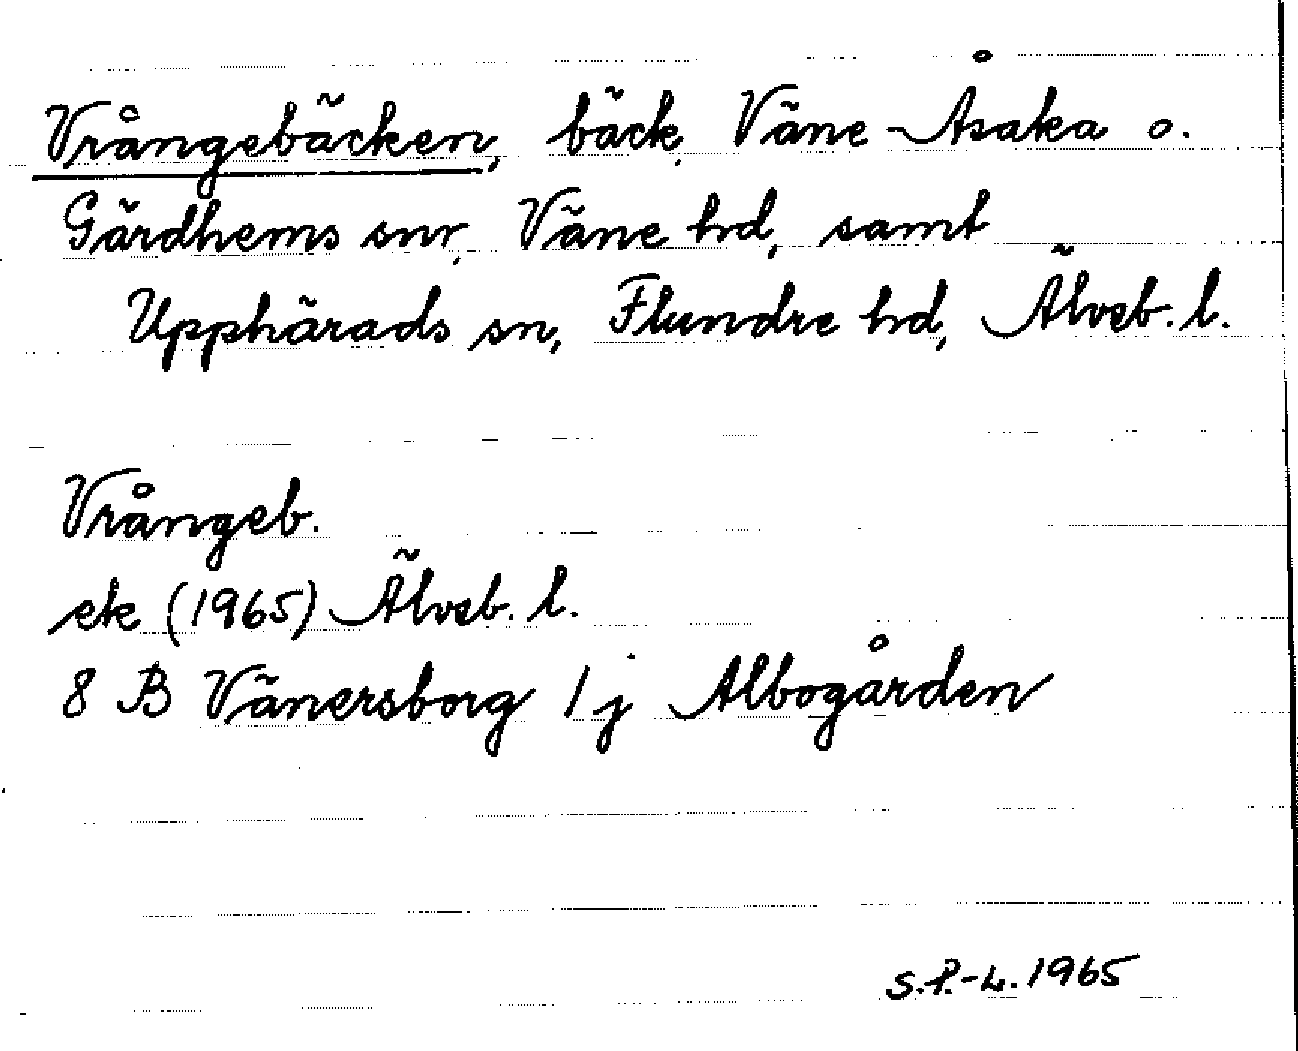 Vrångebäcken, bäck, Väne-Åsaka o.
Gärdhems snr, Väne hd, samt
Upphärads sn, Flundre hd, Älvsb. l.
Vrångeb.
ek (1965) Älvsb. l.
8 B Vänersborg 1 j Albogården
S.P.-L. 1965